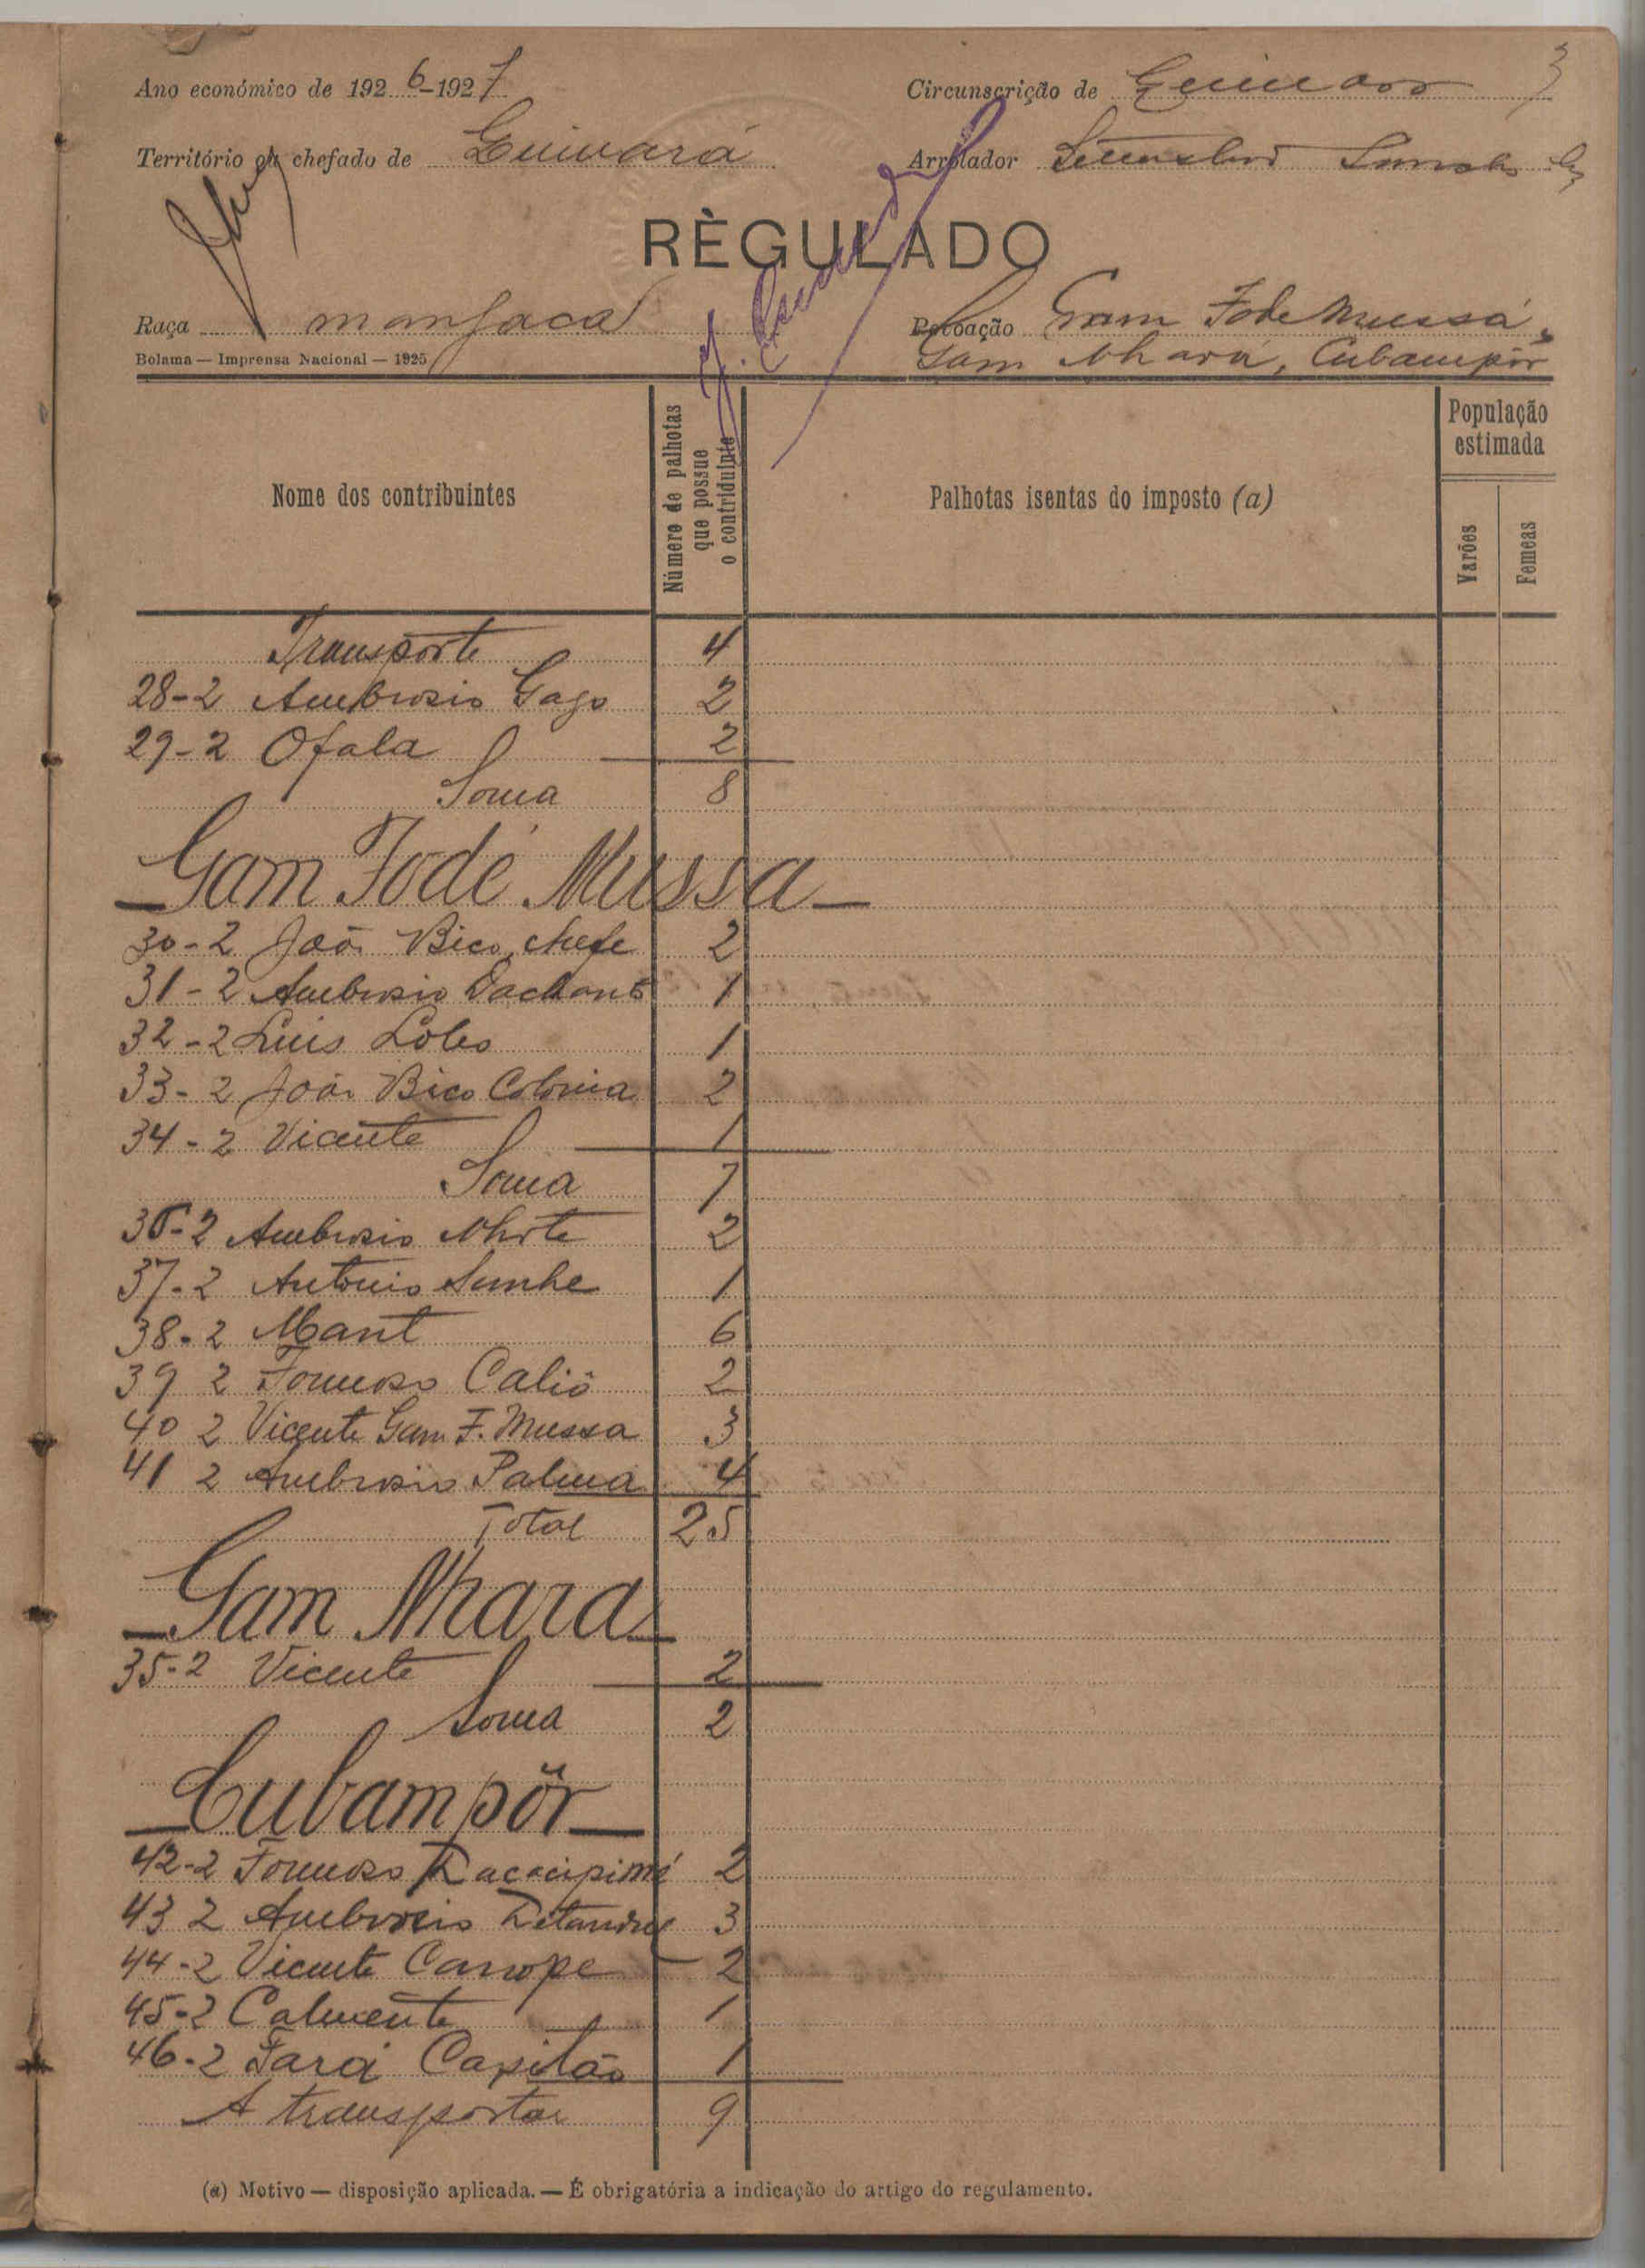 3
Ano económico de 1926-1927
Circunscrição de
Território ou chefado de Guinará
Arrolador
RÈGULADO
Raça manjaca
Povoação Gam Fode Mussá,
Gam Nhará, Cubampôr
Bolama — Imprensa Nacional — 1925
Nome dos contribuintes
Número de palhotas que possue o contriduinte
Palhotas isentas do imposto (a)
População estimada
Varões
Femeas
Transporte 4
28-2 Ambrosio Gago 2
29-2 Ofala 2
Soma 8
Gam Fodé Mussa
30-2 João Bico, chefe 2
31-2 Ambrosio 1
32-2 Luis Lobo 1
33-2 João Bico Colonia 2
34-2 Vicente 1
Soma 7
36-2 Ambrosio 2
37-2 Antonio Sunhe 1
38-2 Mant 6
39 2 Formoso Calió 2
40 2 Vicente Gam F. Mussa 3
41 2 Ambrosio Palma 4
Total 25
Gam Nhara
35-2 Vicente 2
Soma 2
Cubampôr
42-2 Formoso 2
43 2 Ambrosio 3
44-2 Vicente Canope 2
45-2 Calmente 1
46-2 Fará Capitão 1
A transportar 9
(a) Motivo — disposição aplicada. — É obrigatória a indicação do artigo do regulamento.